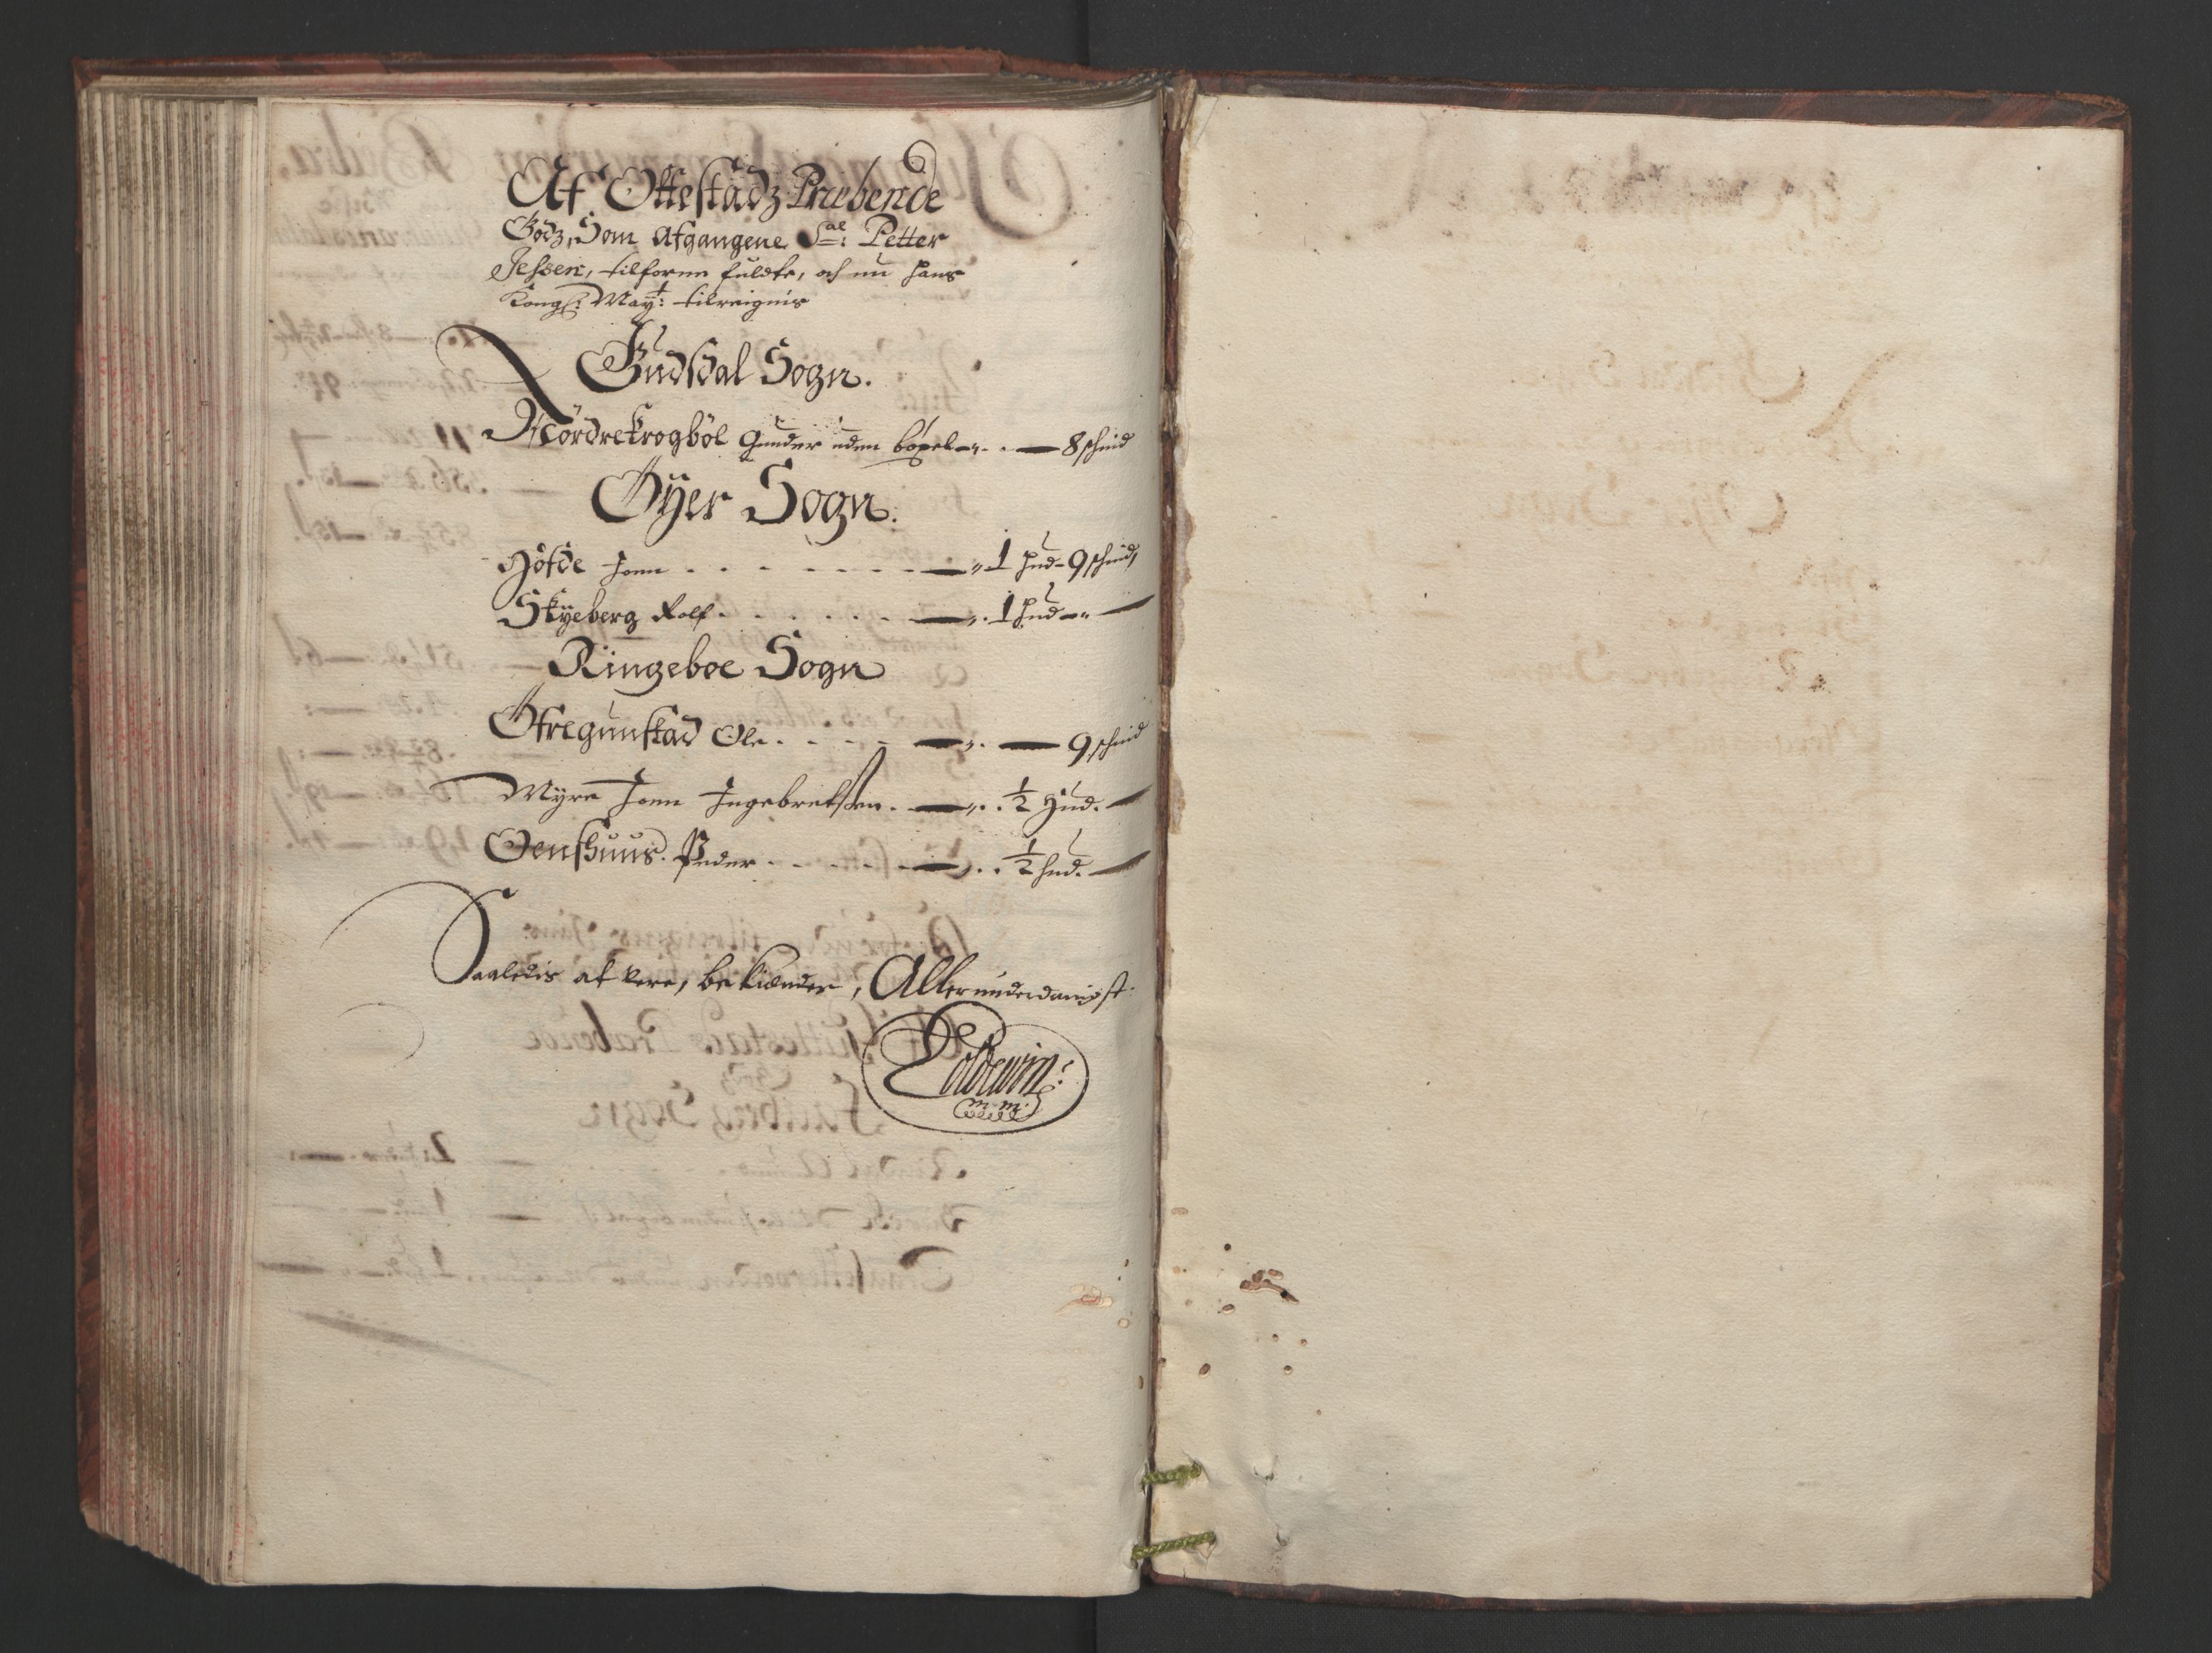 Af Ottestadz Præbende
Godz, Som Afgangene Sal: Petter
Jessen, tilforne fulde, och nu hans
Kongl: Mayt: tilreignis
Gudsdal Sogn.
Nordrekrogböl Gunder uden böxel - 8 schind
Öyer Sogn.
Höfde Joen - 1 hud - 9 schind,
Skyeberg Rolf - 1 hud -
Ringeboe Sogn
Öfregunstad Ole - 9 schind
Myre Joen Ingebretsen - ½ Hud.
Oenshuus. Peder - ½ hud.
Saaledis at vere, bekiender, Allerunderdanigst
m: m: